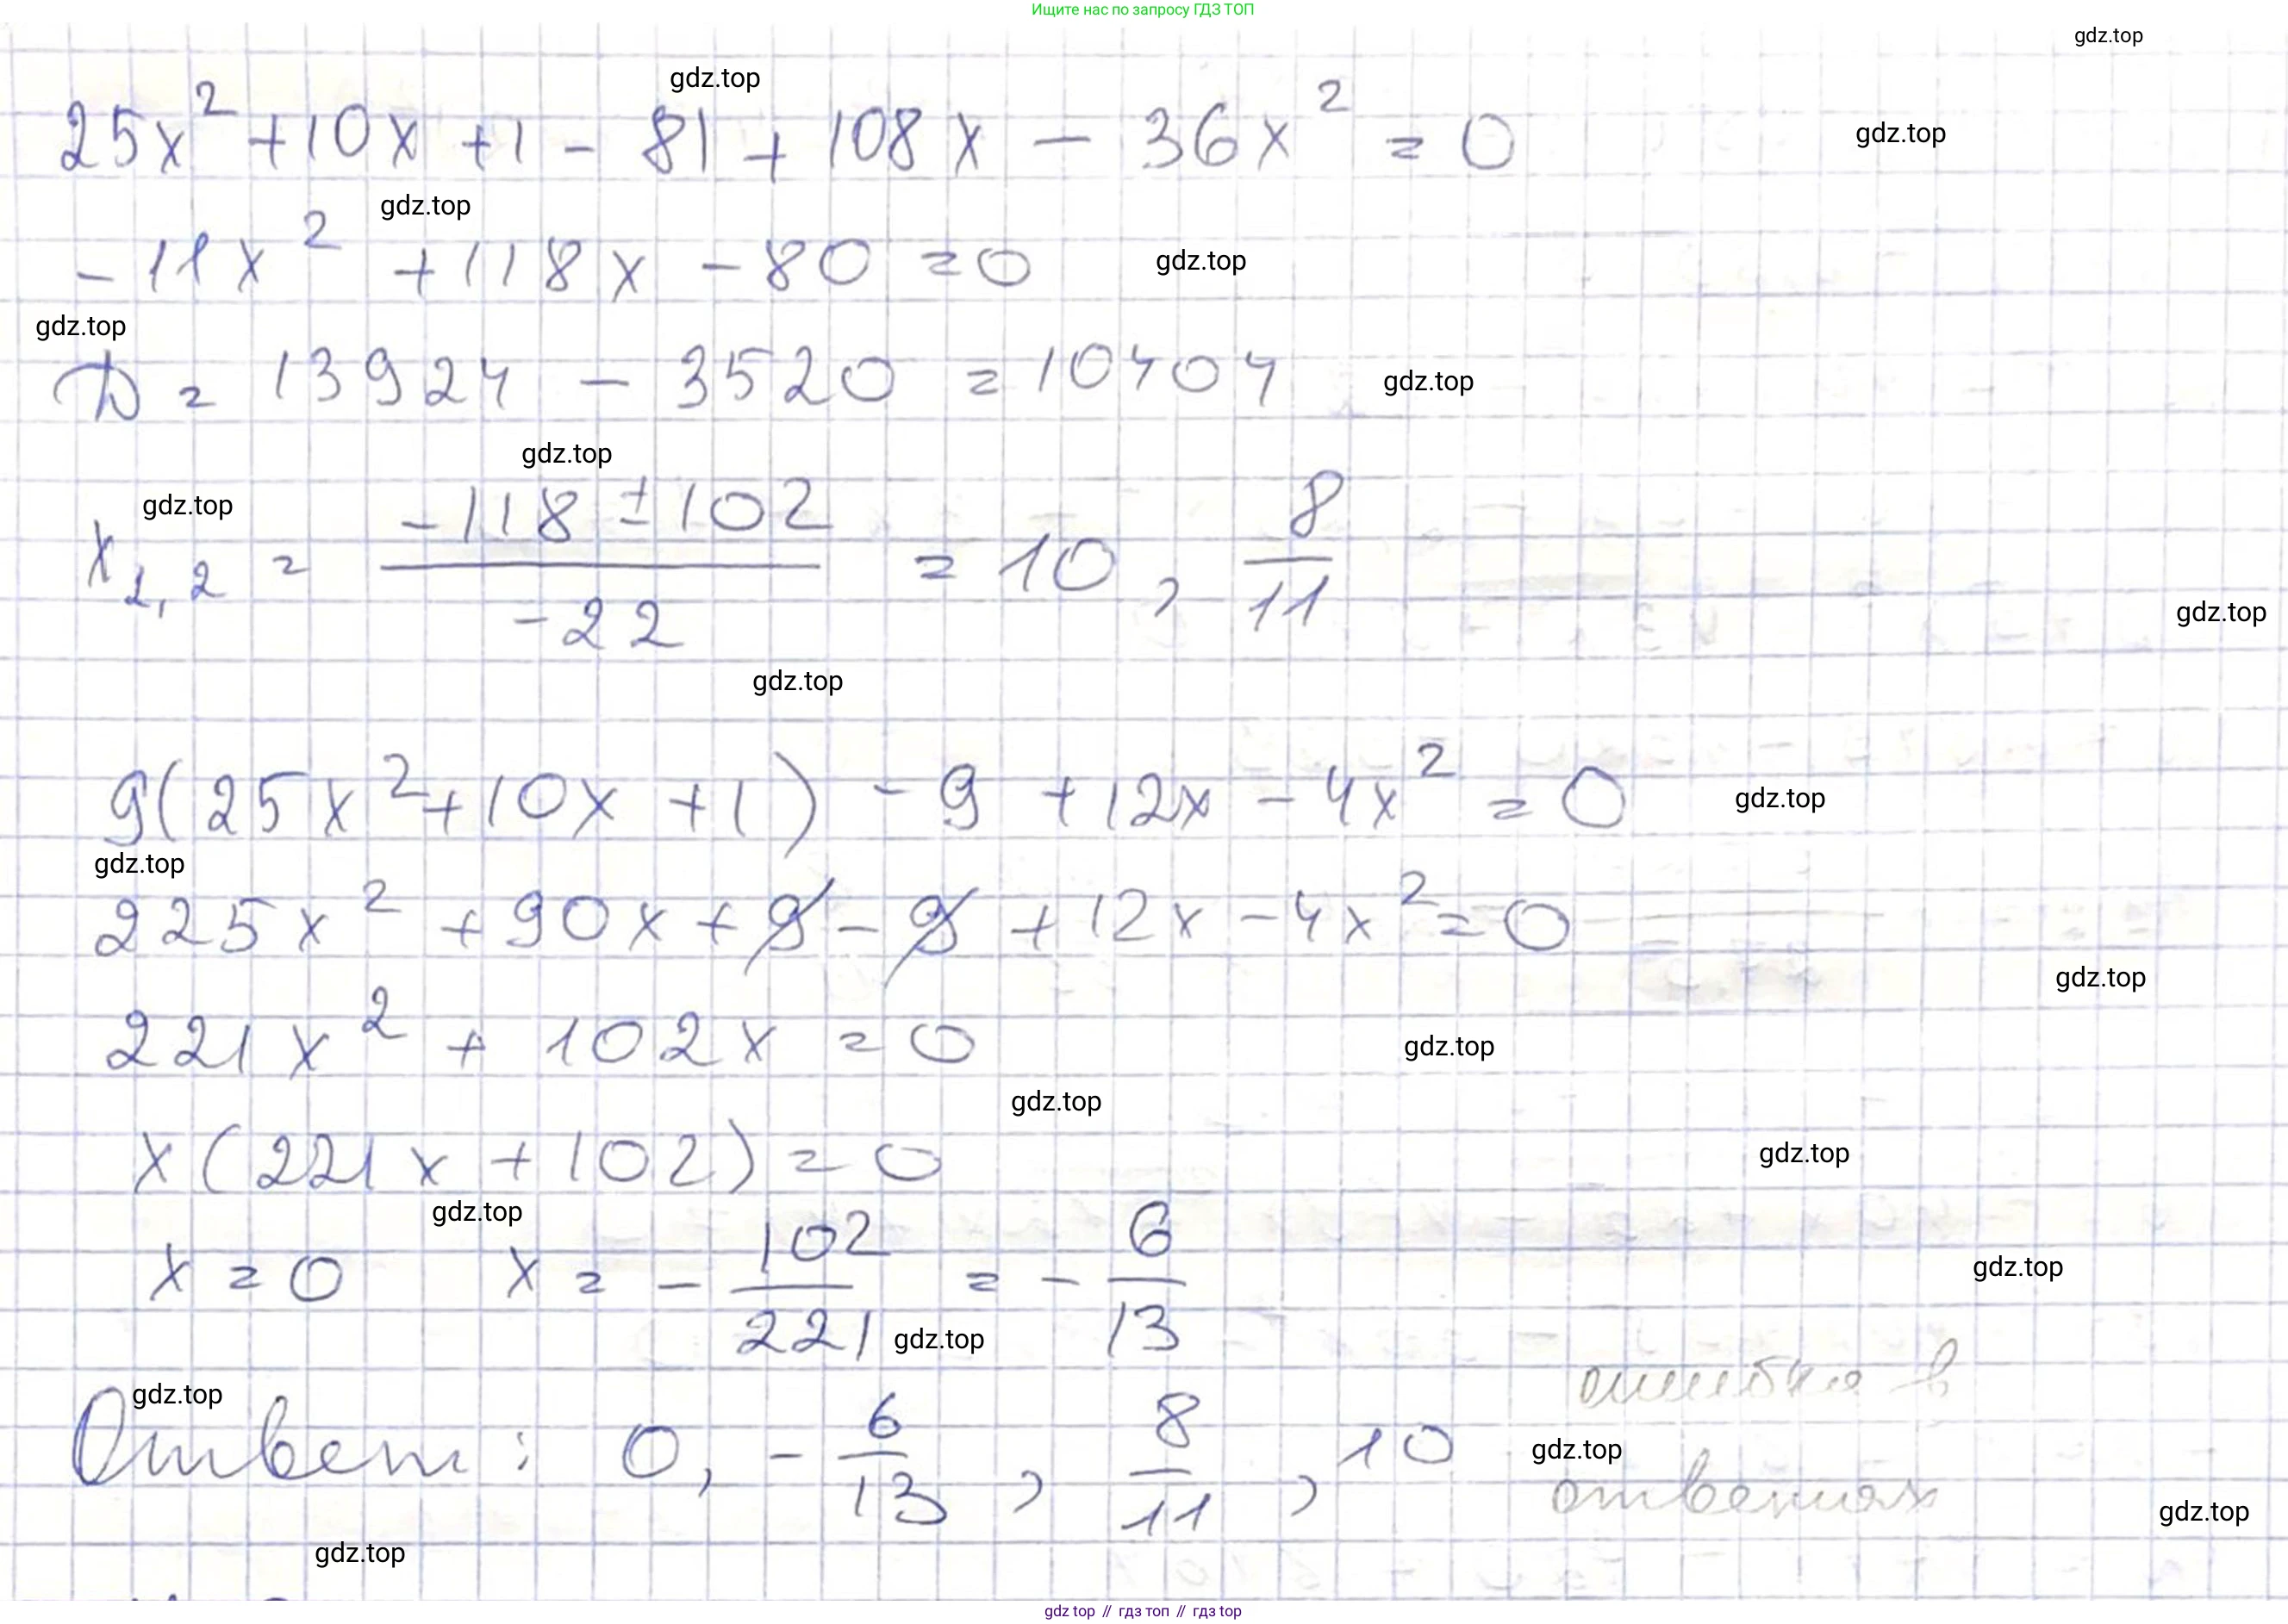 Ищите нас по запросу ГДЗ ТОП
gdz.top
gdz.top
25x² + 10x + 1 - 81 + 108x - 36x² = 0
gdz.top
gdz.top
-11x² + 118x - 80 = 0
gdz.top
gdz.top
D = 13924 - 3520 = 10404
gdz.top
gdz.top
gdz.top
x₁,₂ = (-118 ± 102)/(-22) = 10, 8/11
gdz.top
gdz.top
9(25x² + 10x + 1) - 9 + 12x - 4x² = 0
gdz.top
gdz.top
225x² + 90x + 9 - 9 + 12x - 4x² = 0
gdz.top
221x² + 102x = 0
gdz.top
gdz.top
x(221x + 102) = 0
gdz.top
gdz.top
x = 0 x = - 102/221 = - 6/13
gdz.top
gdz.top
gdz.top
Ответ: 0, - 6/13, 8/11, 10
ошибка в
gdz.top
ответах
gdz.top
gdz.top
gdz top // гдз топ // gdz top